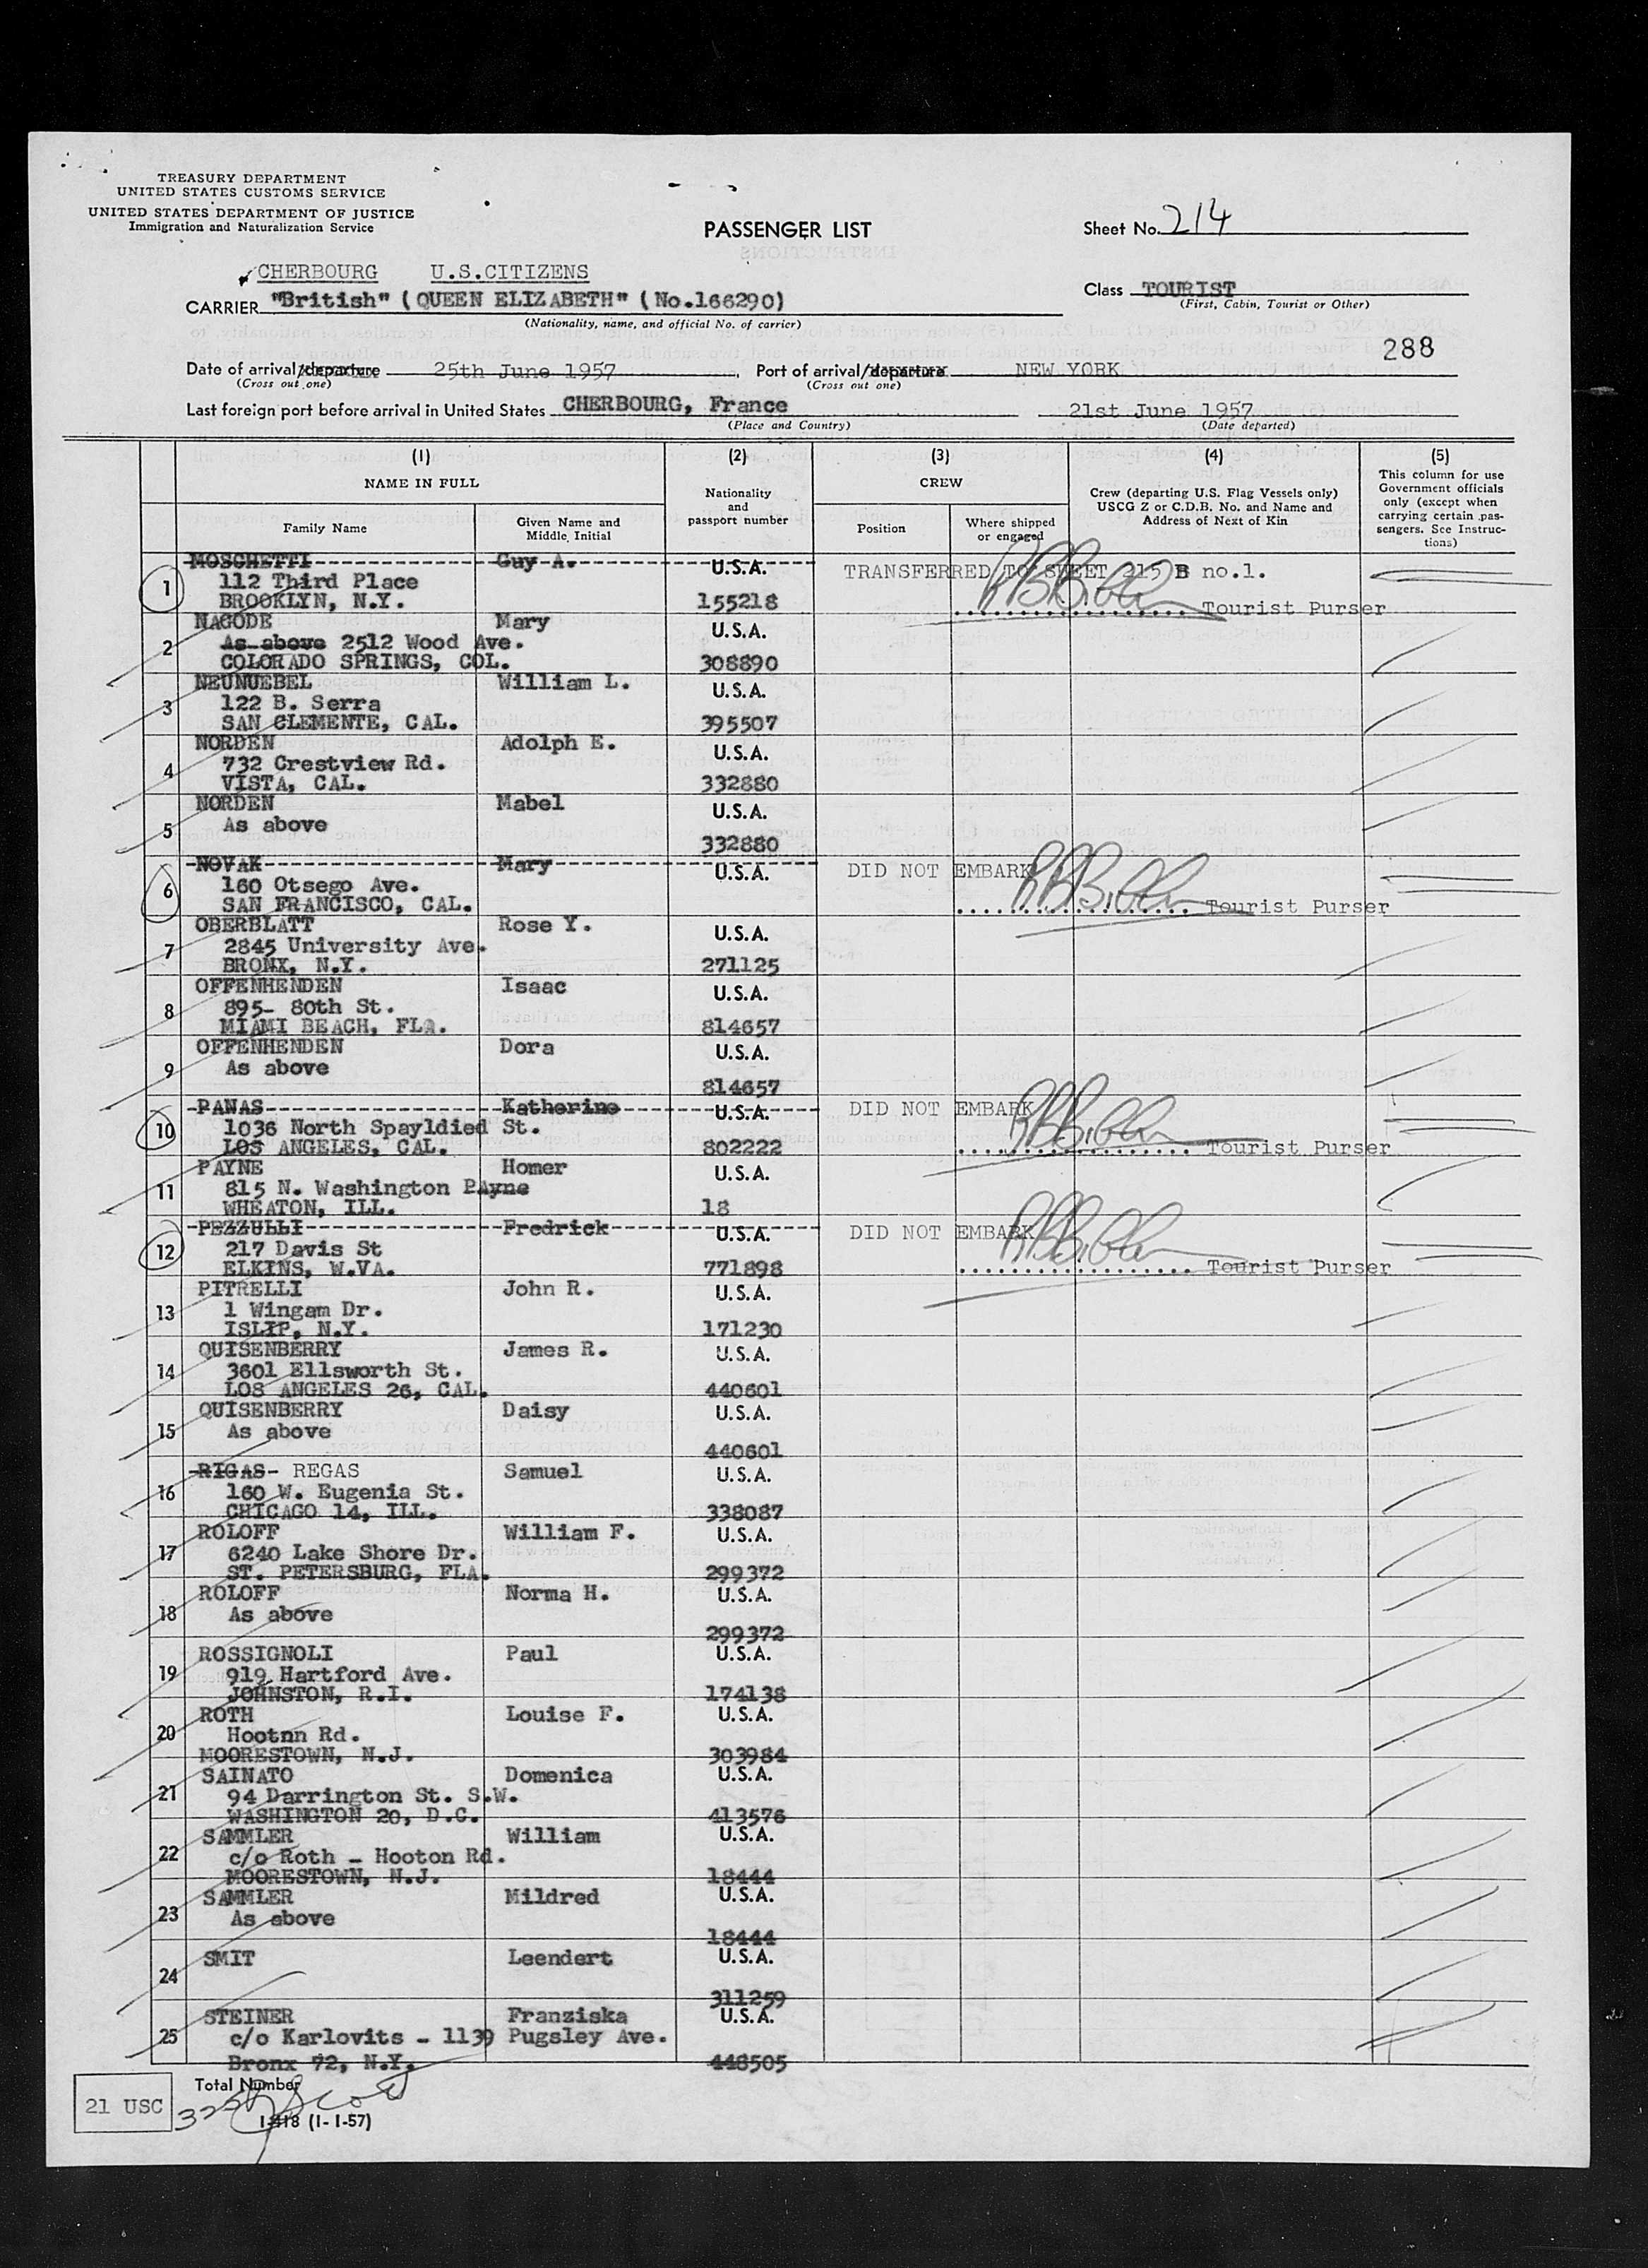 TREASURY DEPARTMENT
UNITED STATES CUSTOMS SERVICE
UNITED STATES DEPARTMENT OF JUSTICE
Immigration and Naturalization Service
PASSENGER LIST
Sheet No. 214
CHERBOURG U.S.CITIZENS
CARRIER "British" (QUEEN ELIZABETH" (No.166290)
(Nationality, name, and official No. of carrier)
Class TOURIST
(First, Cabin, Tourist or Other)
288
Date of arrival/departure 25th June 1957, Port of arrival/departure NEW YORK
(Cross out one) (Cross out one)
Last foreign port before arrival in United States CHERBOURG, France 21st June 1957
(Place and Country) (Date departed)
(1) (2) (3) (4) (5)
NAME IN FULL
Family Name
Given Name and Middle Initial
Nationality and passport number
CREW
Position
Where shipped or engaged
Crew (departing U.S. Flag Vessels only) USCG Z or C.D.B. No. and Name and Address of Next of Kin
This column for use Government officials only (except when carrying certain pas-sengers. See Instruc-tions)
1 MOSCHETTI Guy A. U.S.A. TRANSFERRED TO SHEET 215 B no.1.
112 Third Place
BROOKLYN, N.Y. 155218 Tourist Purser
2 NAGODE Mary U.S.A.
As above 2512 Wood Ave.
COLORADO SPRINGS, COL. 308890
3 NEUNUEBEL William L. U.S.A.
122 B. Serra
SAN CLEMENTE, CAL. 395507
4 NORDEN Adolph E. U.S.A.
732 Crestview Rd.
VISTA, CAL. 332880
5 NORDEN Mabel U.S.A.
As above
332880
6 NOVAK Mary U.S.A. DID NOT EMBARK
160 Otsego Ave.
SAN FRANCISCO, CAL. Tourist Purser
7 OBERBLATT Rose Y. U.S.A.
2845 University Ave.
BRONX, N.Y. 271125
8 OFFENHENDEN Isaac U.S.A.
895- 80th St.
MIAMI BEACH, FLA. 814657
9 OFFENHENDEN Dora U.S.A.
As above
814657
10 PANAS Katherine U.S.A. DID NOT EMBARK
1036 North Spayldied St.
LOS ANGELES, CAL. 802222 Tourist Purser
11 PAYNE Homer U.S.A.
815 N. Washington PAyne
WHEATON, ILL. 18
12 PEZZULLI Fredrick U.S.A. DID NOT EMBARK
217 Davis St
ELKINS, W.VA. 771898 Tourist Purser
13 PITRELLI John R. U.S.A.
1 Wingam Dr.
ISLIP, N.Y. 171230
14 QUISENBERRY James R. U.S.A.
3601 Ellsworth St.
LOS ANGELES 26, CAL. 440601
15 QUISENBERRY Daisy U.S.A.
As above
440601
16 RIGAS- REGAS Samuel U.S.A.
160 W. Eugenia St.
CHICAGO 14, ILL. 338087
17 ROLOFF William F. U.S.A.
6240 Lake Shore Dr.
ST. PETERSBURG, FLA. 299372
18 ROLOFF Norma H. U.S.A.
As above
299372
19 ROSSIGNOLI Paul U.S.A.
919 Hartford Ave.
JOHNSTON, R.I. 174138
20 ROTH Louise F. U.S.A.
Hootnn Rd.
MOORESTOWN, N.J. 303984
21 SAINATO Domenica U.S.A.
94 Darrington St. S.W.
WASHINGTON 20, D.C. 413576
22 SAMMLER William U.S.A.
c/o Roth - Hooton Rd.
MOORESTOWN, N.J. 18444
23 SAMMLER Mildred U.S.A.
As above
18444
24 SMIT Leendert U.S.A.
311259
25 STEINER Franziska U.S.A.
c/o Karlovits - 1139 Pugsley Ave.
Bronx 72, N.Y. 448505
Total Number
21 USC
I-418 (1-1-57)